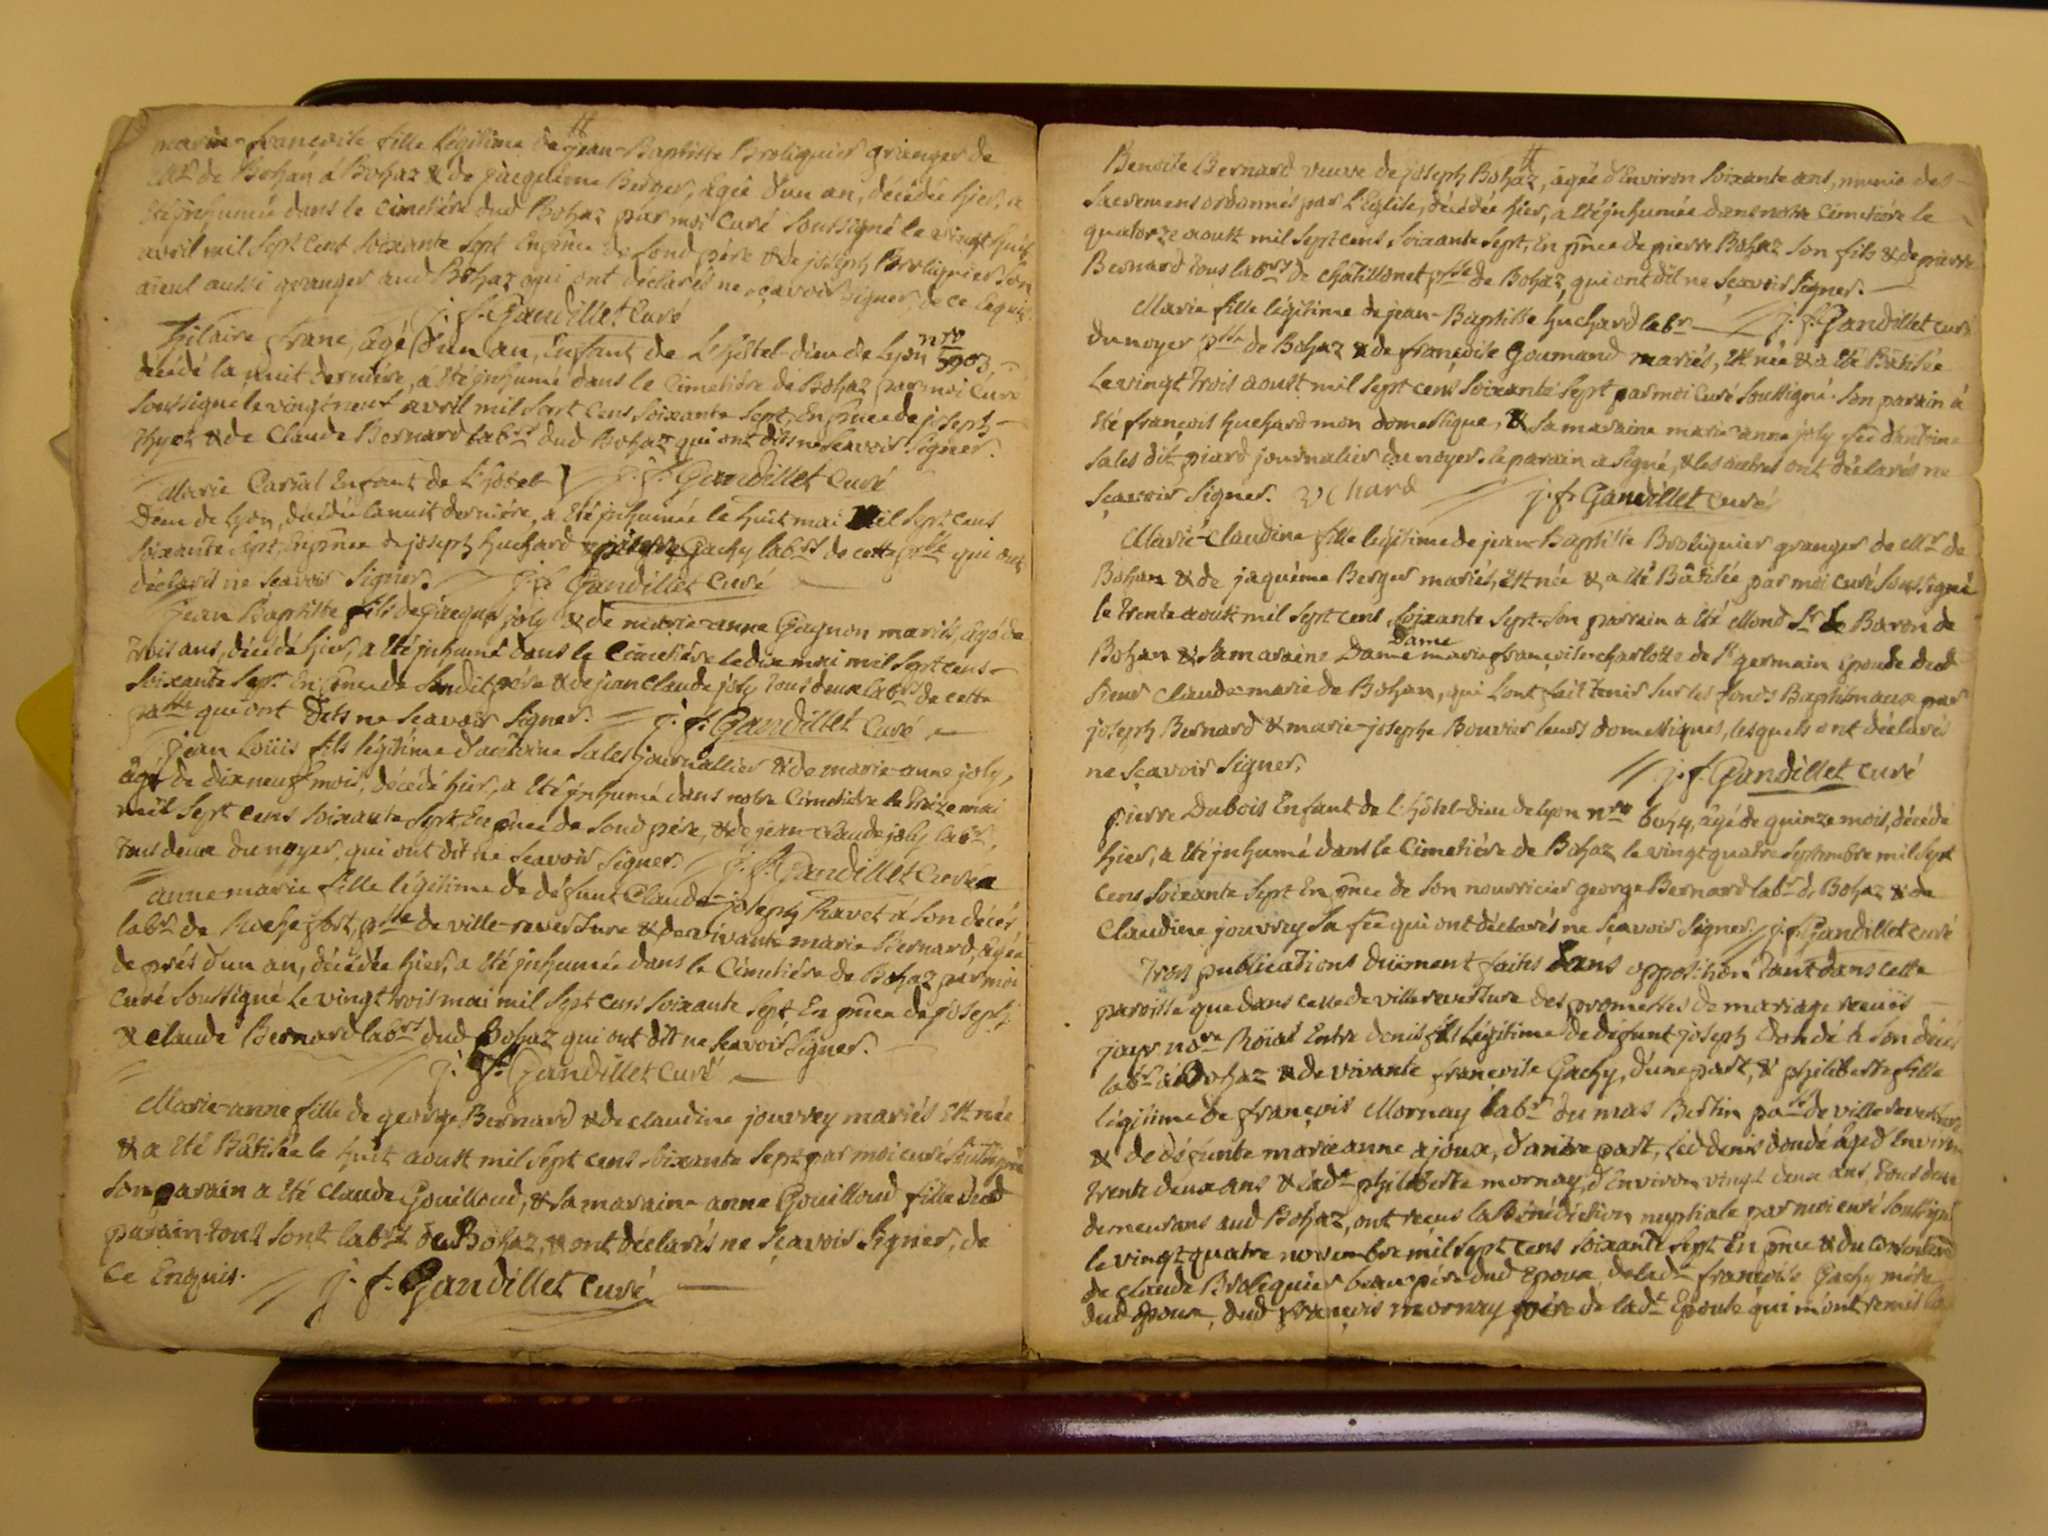 marie-françoise fille légitime de jean-Baptiste Broliquier granger de
Mr de Bohan à Bohaz & de jaqueme Berger, agée d'un an, décédée hier, a
été jnhumée dans le cimetiére dud Bohaz par moi curé soussigné le vingt huit
avril mil sept cent soixante sept En pnce de sond pére & de joseph Broliquier son
aieul aussi granger aud Bohaz qui ont déclarés ne sçavoir signer, de ce Enquis.
j. f. Gandillet Curé
hilaire franc, agé d'un an, Enfant de L'hôtel-dieu de Lyon nro 5903,
décédé la nuit derniére, a été jnhumé dans le Cimetiére de Bohaz par moi Curé
soussigné le vingt neuf avril mil sept cens soixante sept, En pnce de joseph
& de Claude Bernard labrs dud Bohaz qui ont dits ne scavoir signer.
j. f. Gandillet Curé
Marie Enfant de L'hôtel
Dieu de Lyon, décédée la nuit derniére, a été jnhumée le huit mai mil sept cens
soixante sept, En pnce de joseph huchard & Gachy labrs de cette psse qui ont
déclarés ne scavoir signer. j. f. Gandillet Curé
jean Baptiste fils de jacque joly & de marie-anne Gagnon mariés, agé de
trois ans, décédé hier, a été jnhumé dans le Cimetiére le dix mai mil sept cens
soixante sept En pnce de sondit pére & de jean claude joly tous deux labrs de cette
psse qui ont dits ne scavoir signer. j. f. Gandillet Curé
jean Loüis fils légitime d'antoine sales journallier & de marie-anne joly,
âgé de dix neuf mois, décédé hier, a été jnhumé dans notre Cimetiére le treize mai
mil sept cens soixante sept En pnce de sond pére, & de jean claude joly labr,
tous deux du noyer, qui ont dit ne scavoir signer. j. f. Gandillet Curé
anne marie fille légitime de défunt Claude-joseph Ravet à son décés
labr de Rochefort, psse de ville-reversure & de vivante marie Bernard, agée
de prés d'un an, décédée hier, a été jnhumée dans le Cimetiére de Bohaz par moi
curé soussigné le vingt trois mai mil sept cens soixante sept En pnce de joseph
& claude Bernard labrs dud Bohaz qui ont dit ne scavoir signer.
j. f. Gandillet Curé
Marie-anne fille de george Bernard & de claudine jouvrey mariés Est née
& a été Bâtisée le huit aoust mil sept cens soixante sept par moi curé soussigné
son parain a été claude Gouilloud, & sa maraine anne Gouilloud fille dud
parain tous sont labrs de Bohaz, & ont déclarés ne sçavoir signer, de
ce Enquis. j. f. Gandillet curé
Benoite Bernard veuve de joseph Bohaz, agée d'Environ soixante ans, munie des
sacremens ordonnés par L'Eglise, décédée hier, a été jnhumée dans notre Cimetiére le
quatorze aoust mil sept cens soixante sept, En pnce de pierre Bohaz son fils & de pierre
Bernard tous labrs de chatillonet psse de Bohaz, qui ont dit ne sçavoir signer.
Marie fille légitime de jean-Baptiste huchard labr j. f. Gandillet curé
du noyer psse de Bohaz & de françoise Goumand mariés, Est née & a été Bâtisée
le vingt trois aoust mil sept cens soixante sept par moi Curé soussigné. son parain a
été françois huchard mon domestique, & sa maraine marie-anne joly fee d'antoine
sales dit piard journalier du noyer. le parain a signé, & les autres ont déclarés ne
sçavoir signer. j. f. Gandillet curé
Marie-Claudine fille légitime de jean-Baptiste Broliquier granger de Mr de
Bohan & de jaquéme Berger mariés, Est née & a été Bâtisée par moi curé soussigné
le trente aoust mil sept cens soixante sept. son parrain a été Mond Sr le Baron de
Bohan & sa maraine Dame Dame marie françoise charlotte de St germain Epouse dud
sieur Claude marie de Bohan, qui l'ont fait tenir sur les fonds Baptismaux par
joseph Bernard & marie-josephe Bouvier leurs domestiques, lesquels ont déclarés
ne sçavoir signer. j. f. Gandillet curé
pierre Dubois Enfant de L'hôtel-Dieu de lyon nro 6074, âgé de quinze mois, décédé
hier, a été jnhumé dans le Cimetiére de Bohaz le vingt quatre septembre mil sept
cens soixante sept En pnce de son nourricier george Bernard labr de Bohaz & de
Claudine jouvrey sa fee qui ont déclarés ne sçavoir signer. j. f. Gandillet curé
Trois publications düement faites sans opposition tant dans cette
paroisse que dans celle de villereversure des promesses de mariage
Entre denis fils légitime de défunt joseph dondé à son décés
labr à Bohaz & de vivante françoise Gachy, d'une part, & philiberte fille
légitime de françois Mornay labr du mas Bertin psse de villereversure
& de défunte marie anne ajoux, d'autre part, led denis dondé âgé d'Environ
trente deux ans & lade philiberte mornay, d'Environ vingt deux ans, tous deux
demeurans aud Bohaz, ont reçus la Bénédiction nuptiale par moi curé soussigné
le vingt quatre novembre mil sept cens soixante sept En pnce & du consentemt
de claude Broliquier beau pére dud Epoux, de lade françoise Gachy mére
dud Epoux, dud françois mornay pére de lade Epouse qui m'ont remis